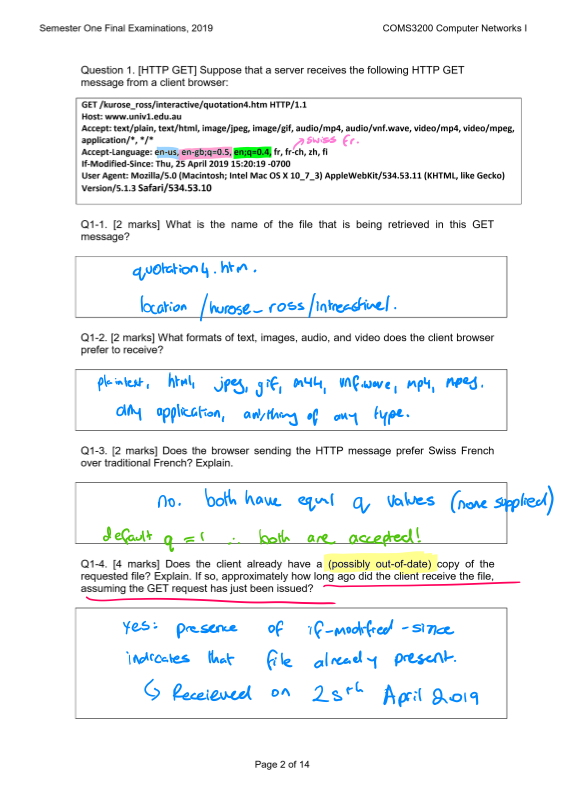 Semester One Final Examinations, 2019 COMS3200 Computer Networks I
Question 1. [HTTP GET] Suppose that a server receives the following HTTP GET
message from a client browser:
GET /kurose_ross/interactive/quotation4.htm HTTP/1.1
Host: www.univ1.edu.au
Accept: text/plain, text/html, image/jpeg, image/gif, audio/mp4, audio/vnf.wave, video/mp4, video/mpeg,
application/*, */*
swiss fr.
Accept-Language: en-us, en-gb;q=0.5, en;q=0.4, fr, fr-ch, zh, fi
If-Modified-Since: Thu, 25 April 2019 15:20:19 -0700
User Agent: Mozilla/5.0 (Macintosh; Intel Mac OS X 10_7_3) AppleWebKit/534.53.11 (KHTML, like Gecko)
Version/5.1.3 Safari/534.53.10
Q1-1. [2 marks] What is the name of the file that is being retrieved in this GET
message?
quotation4.htm.
location /kurose_ross/
Q1-2. [2 marks] What formats of text, images, audio, and video does the client browser
prefer to receive?
plaintext, html, jpeg, gif, vnf.wave, mp4, mpeg.
any application, anything of any type.
Q1-3. [2 marks] Does the browser sending the HTTP message prefer Swiss French
over traditional French? Explain.
no. both have equal q values (none supplied)
default q = 1 ∴ both are accepted!
Q1-4. [4 marks] Does the client already have a (possibly out-of-date) copy of the
requested file? Explain. If so, approximately how long ago did the client receive the file,
assuming the GET request has just been issued?
yes: presence of if-modified-since
indicates that file already present.
↳ Receieved on 25th April 2019
Page 2 of 14